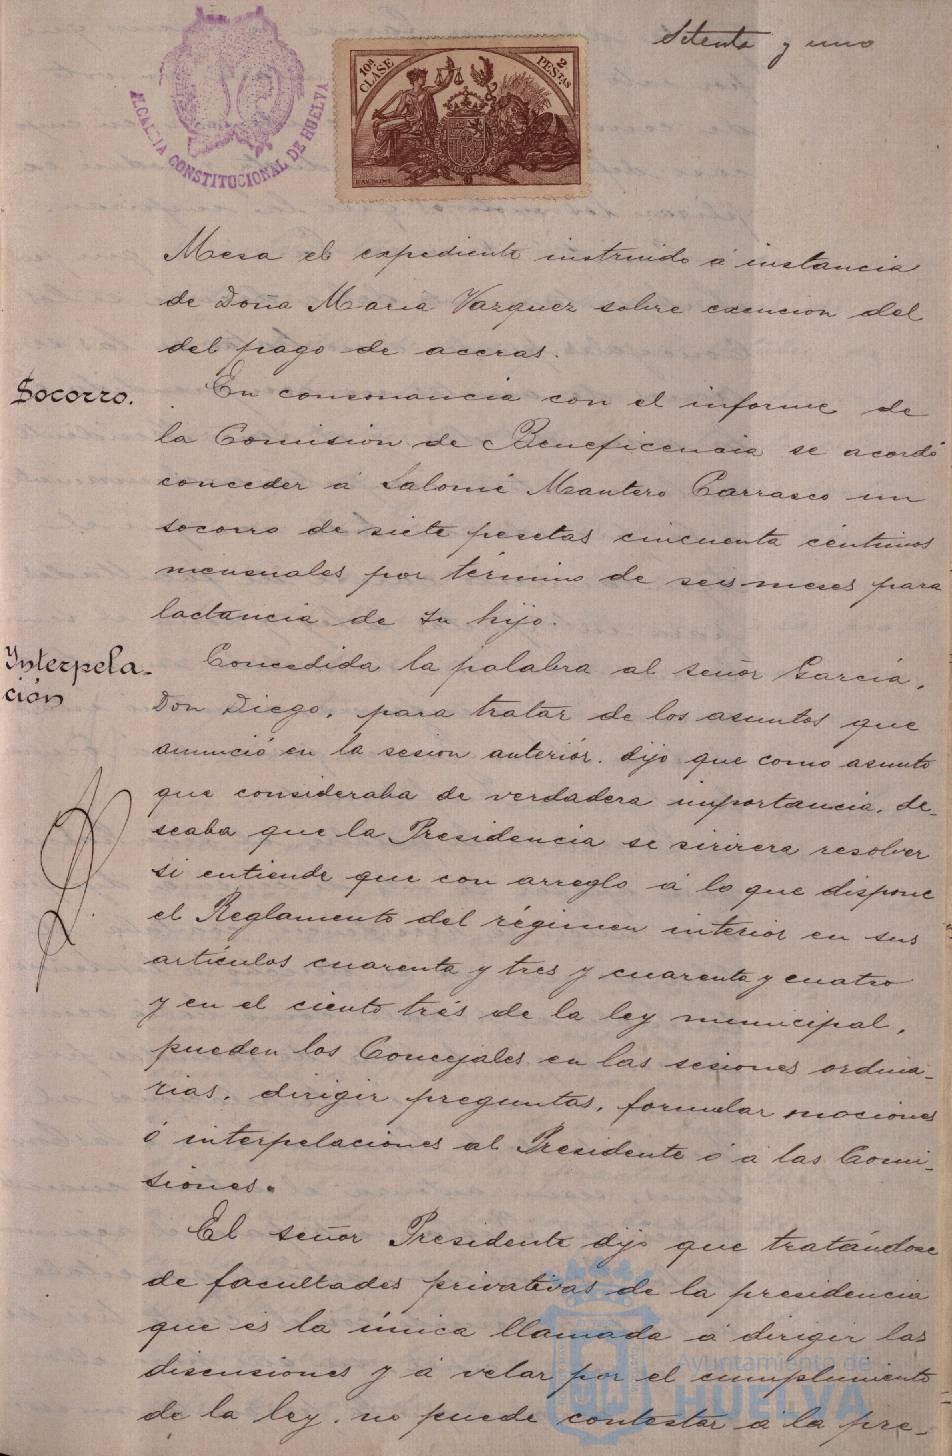 Setenta y uno
ALCALDIA CONSTITUCIONAL DE HUELVA
10ª CLASE
2 PESTAS
Mesa el expediente instruido á instancia
de Doña Maria Vazquez sobre exencion del
del pago de aceras.
Socorro.
En consonancia con el informe de
la Comisión de Beneficencia se acordó
conceder á Salomé Mantero Carrasco un
socorro de siete pesetas cincuenta céntimos
mensuales por término de seis meses para
lactancia de su hijo.
Interpela-
ción
Concedida la palabra al señor García,
Don Diego, para tratar de los asuntos que
anunció en la sesion anteriór. dijo que como asunto
que consideraba de verdadera importancia, de-
seaba que la Presidencia se sirirera resolver
si entiende que con arreglo á lo que dispone
el Reglamento del régimen interior en sus
artículos cuarenta y tres y cuarenta y cuatro
y en el ciento trés de la ley municipal,
pueden los Concejales en las sesiones ordina-
rias, dirigir preguntas, formular mociones
ó interpelaciones al Presidente ó á las Comi-
siones.
El señor Presidente dijo que tratándose
de facultades privativas de la presidencia
que es la única llamada á dirigir las
discusiones y á velar por el cumplimiento
de la ley, no puede contestar á la pre-
Ayuntamiento de
HUELVA